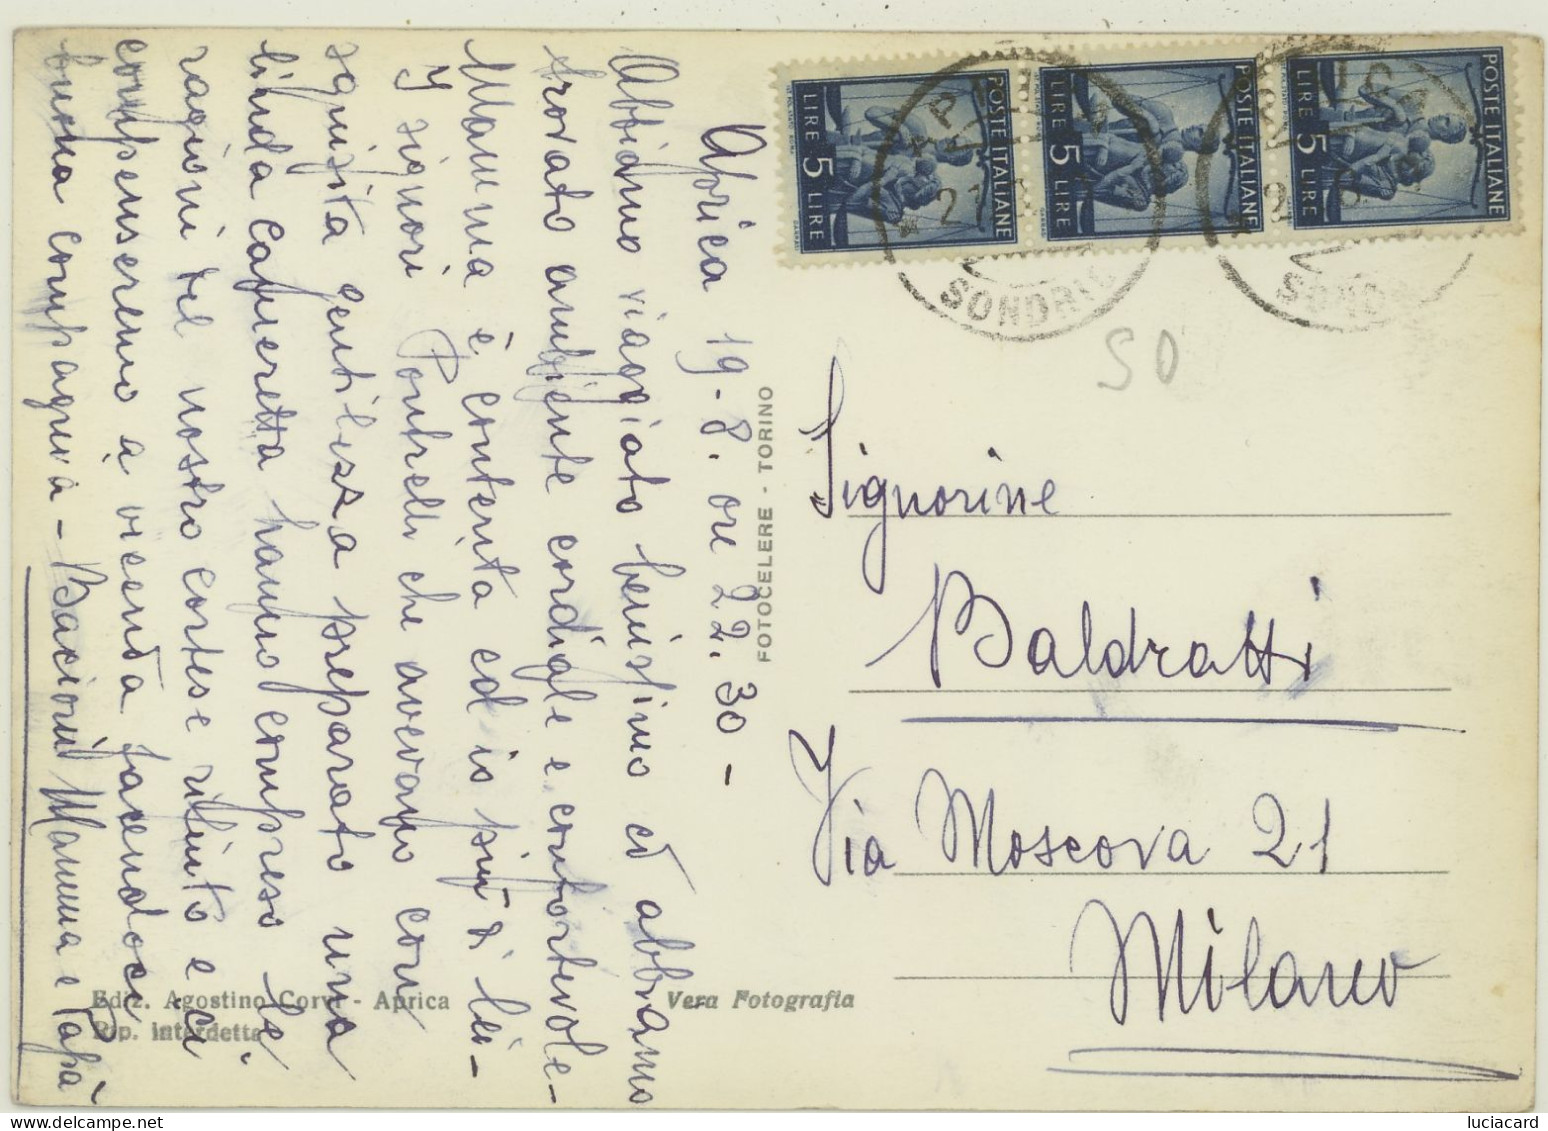 Aprica 19-8. ore 22.30 -
Abbiamo viaggiato benissimo ed abbiamo
trovato ambiente cordiale e confortevole -
Mamma è contenta ed io più di lei -
I signori Pontrelli che avevano con
squisita gentilezza preparato una
linda cameretta hanno compreso le
ragioni del nostro cortese rifiuto e ci
compenseremo a vicenda facendoci
buona compagnia - Bacioni Mamma e Papà
Ediz. Agostino Corvi - Aprica
Rip. interdetta
Vera Fotografia
FOTOCELERE - TORINO
POSTE ITALIANE
LIRE 5 LIRE
POSTE ITALIANE
LIRE 5 LIRE
POSTE ITALIANE
LIRE 5 LIRE
APRICA
21
SONDRIO
SO
Signorine
Baldratti
Via Moscova 21
Milano
luciacard